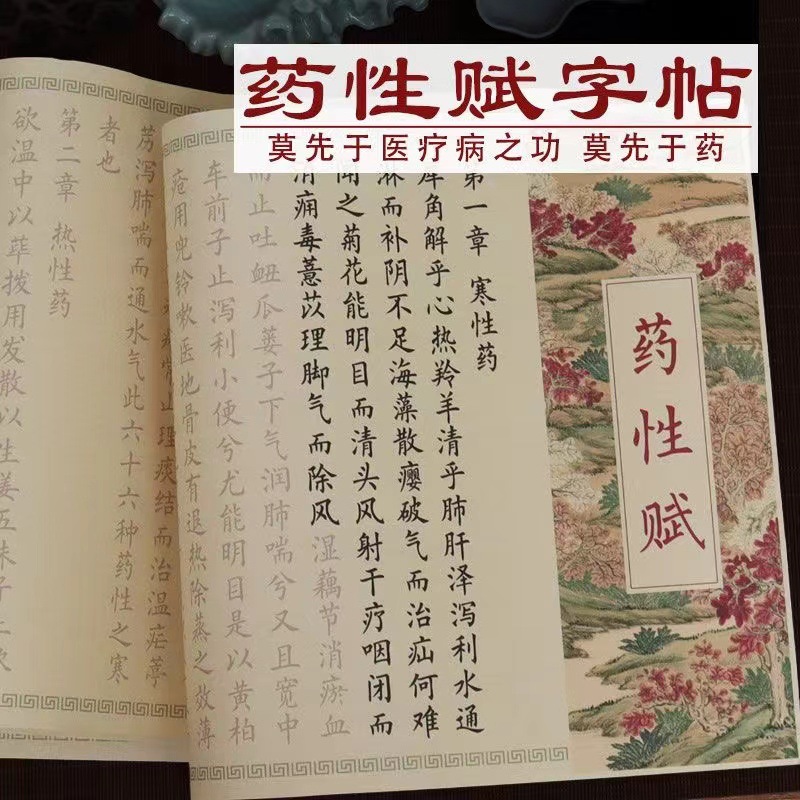 药性赋字帖
莫先于医疗病之功 莫先于药
药性赋
第一章 寒性药
犀角解乎心热羚羊清乎肺肝泽泻利水通
淋而补阴不足海藻散瘿破气而治疝何难
闻之菊花能明目而清头风射干疗咽闭而
消痈毒薏苡理脚气而除风湿藕节消瘀血
而止吐衄瓜蒌子下气润肺喘兮又且宽中
车前子止泻利小便兮尤能明目是以黄柏
疮用兜铃嗽医地骨皮有退热除蒸之效薄
理痰结而治温疟葶
苈泻肺喘而通水气此六十六种药性之寒
者也
第二章 热性药
欲温中以荜拨用发散以生姜五味子止